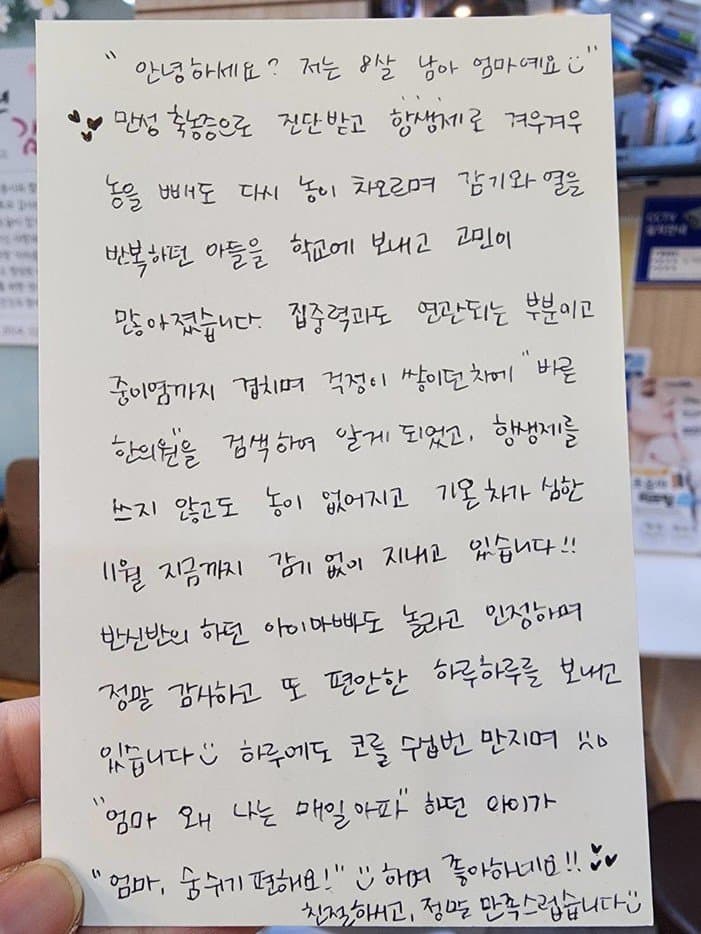 "안녕하세요? 저는 8살 남아 엄마예요"
만성 축농증으로 진단받고 항생제로 겨우겨우
농을 빼도 다시 농이 차오르며 감기와 열을
반복하던 아들을 학교에 보내고 고민이
많아졌습니다. 집중력과도 연관되는 부분이고
중이염까지 겹치며 걱정이 쌓이던차에 "바른
한의원"을 검색하여 알게 되었고, 항생제를
쓰지 않고도 농이 없어지고 기온차가 심한
11월 지금까지 감기 없이 지내고 있습니다!!
반신반의 하던 아이아빠도 놀라고 인정하며
정말 감사하고 또 편안한 하루하루를 보내고
있습니다 하루에도 코를 수십번 만지며
"엄마 왜 나는 매일아파" 하던 아이가
"엄마, 숨쉬기 편해요!" 하며 좋아하네요!!
친절하시고, 정말 만족스럽습니다
CCTV